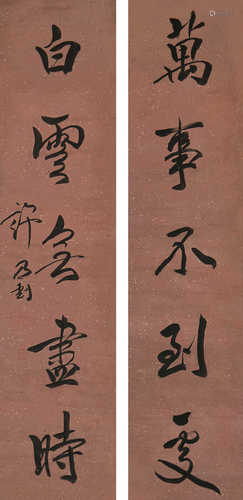 萬事不到處
白雲無盡時
許乃釗